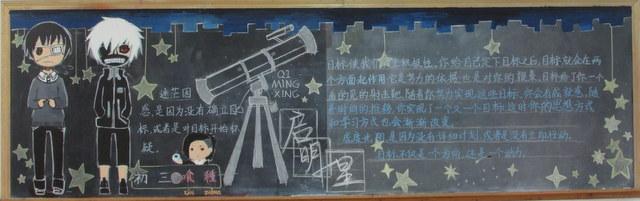 迷茫困
惑,是因为没有确立目
标,或者是对目标开始怀
疑.
初三喰種
QI
MING
XING
启
明
星
目标使我们产生积极性。你给自己定下目标之后,目标就会在两
个方面起作用:它是努力的依据,也是对你的鞭策。目标给了你一个
看的见的射击靶。随着你努力实现这些目标,你会有成就感。随
着时间的推移,你实现了一个又一个目标,这时你的思想方式
和学习方式也会渐渐改变。
是因为没有详细计划,或者是没有立即行动。
目标不仅是一个方向,还是一个动力。